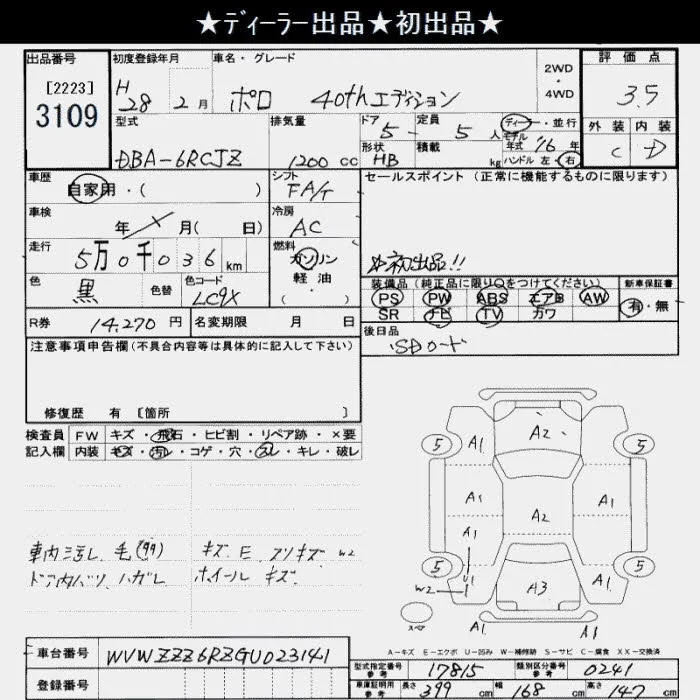 ★ディーラー出品★初出品★
出品番号
[2223]
3109
初度登録年月
H 28 2月
車名・グレード
ポロ 40thエディション
2WD
・
4WD
評価点
3.5
外装 内装
C D
型式
DBA-6RCJZ
排気量
1200 cc
ドア 5
定員 5 人
形状 HB
積載 kg
ディーラー・並行
モデル年式 16年
ハンドル 左・右
車歴
自家用・( )
シフト
FA/T
セールスポイント(正常に機能するものに限ります)
☆初出品!!
車検
年 月( 日)
冷房
AC
走行
5万0千036km
燃料
ガソリン
軽油
( ・ )
色
黒
色替
色コード
LC9X
装備品(純正品に限りQをつけてください)
PS PW ABS エアB AW
SR ナビ TV カワ
新車保証書
有・無
R券
14,270 円
名変期限 月 日
後日品
SDカード
注意事項申告欄(不具合内容等は具体的に記入して下さい)
修復歴 有 [箇所 ]
検査員
記入欄
FW キズ・飛石・ヒビ割・リペア跡・×要
内装 キズ・汚レ・コゲ・穴・スレ・キレ・破レ
車内汚レ 毛
ドア内バリ ハガレ
キズ E スリキズ W2
ホイール キズ
5 A1 A2 5
A1 A2 A1
A1
5 U1 A3 A1 5
W2
スペア
A1 A1
A-キズ E-エクボ U-凹み W-補修跡 S-サビ C-腐食 XX-交換済
車台番号
WVWZZZ6RZGU023141
登録番号
型式指定番号
参考
17815
類別区分番号
参考
0241
車庫証明用
参考
長さ 399 cm
幅 168 cm
高さ 147 cm